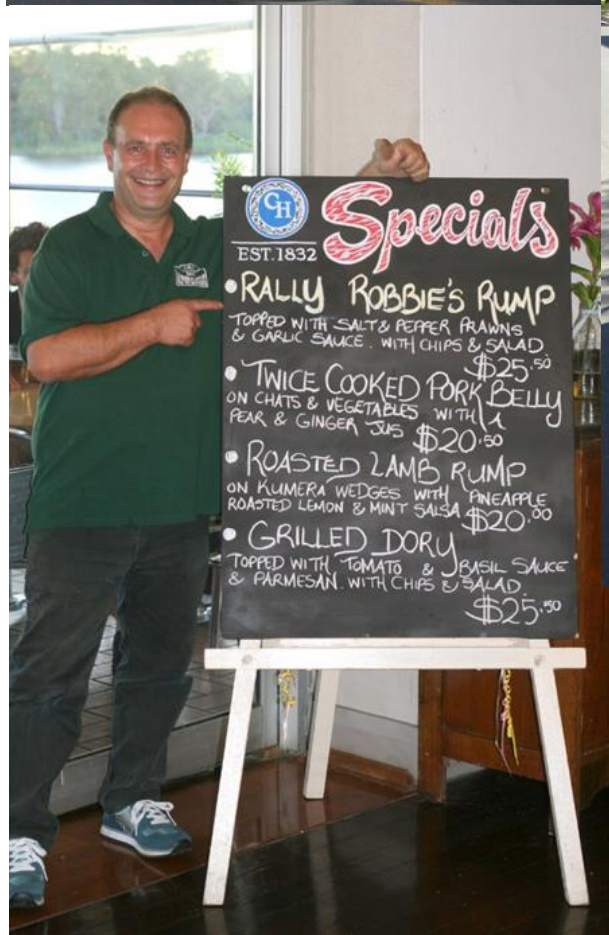 CH
EST.1832
Specials
RALLY ROBBIE'S RUMP
TOPPED WITH SALT & PEPPER PRAWNS
& GARLIC SAUCE. WITH CHIPS & SALAD
$25.50
TWICE COOKED PORK BELLY
ON CHATS & VEGETABLES WITH A
PEAR & GINGER JUS $20.50
ROASTED LAMB RUMP
ON KUMERA WEDGES WITH PINEAPPLE
ROASTED LEMON & MINT SALSA $20.00
GRILLED DORY
TOPPED WITH TOMATO & BASIL SAUCE
& PARMESAN. WITH CHIPS & SALAD.
$25.50